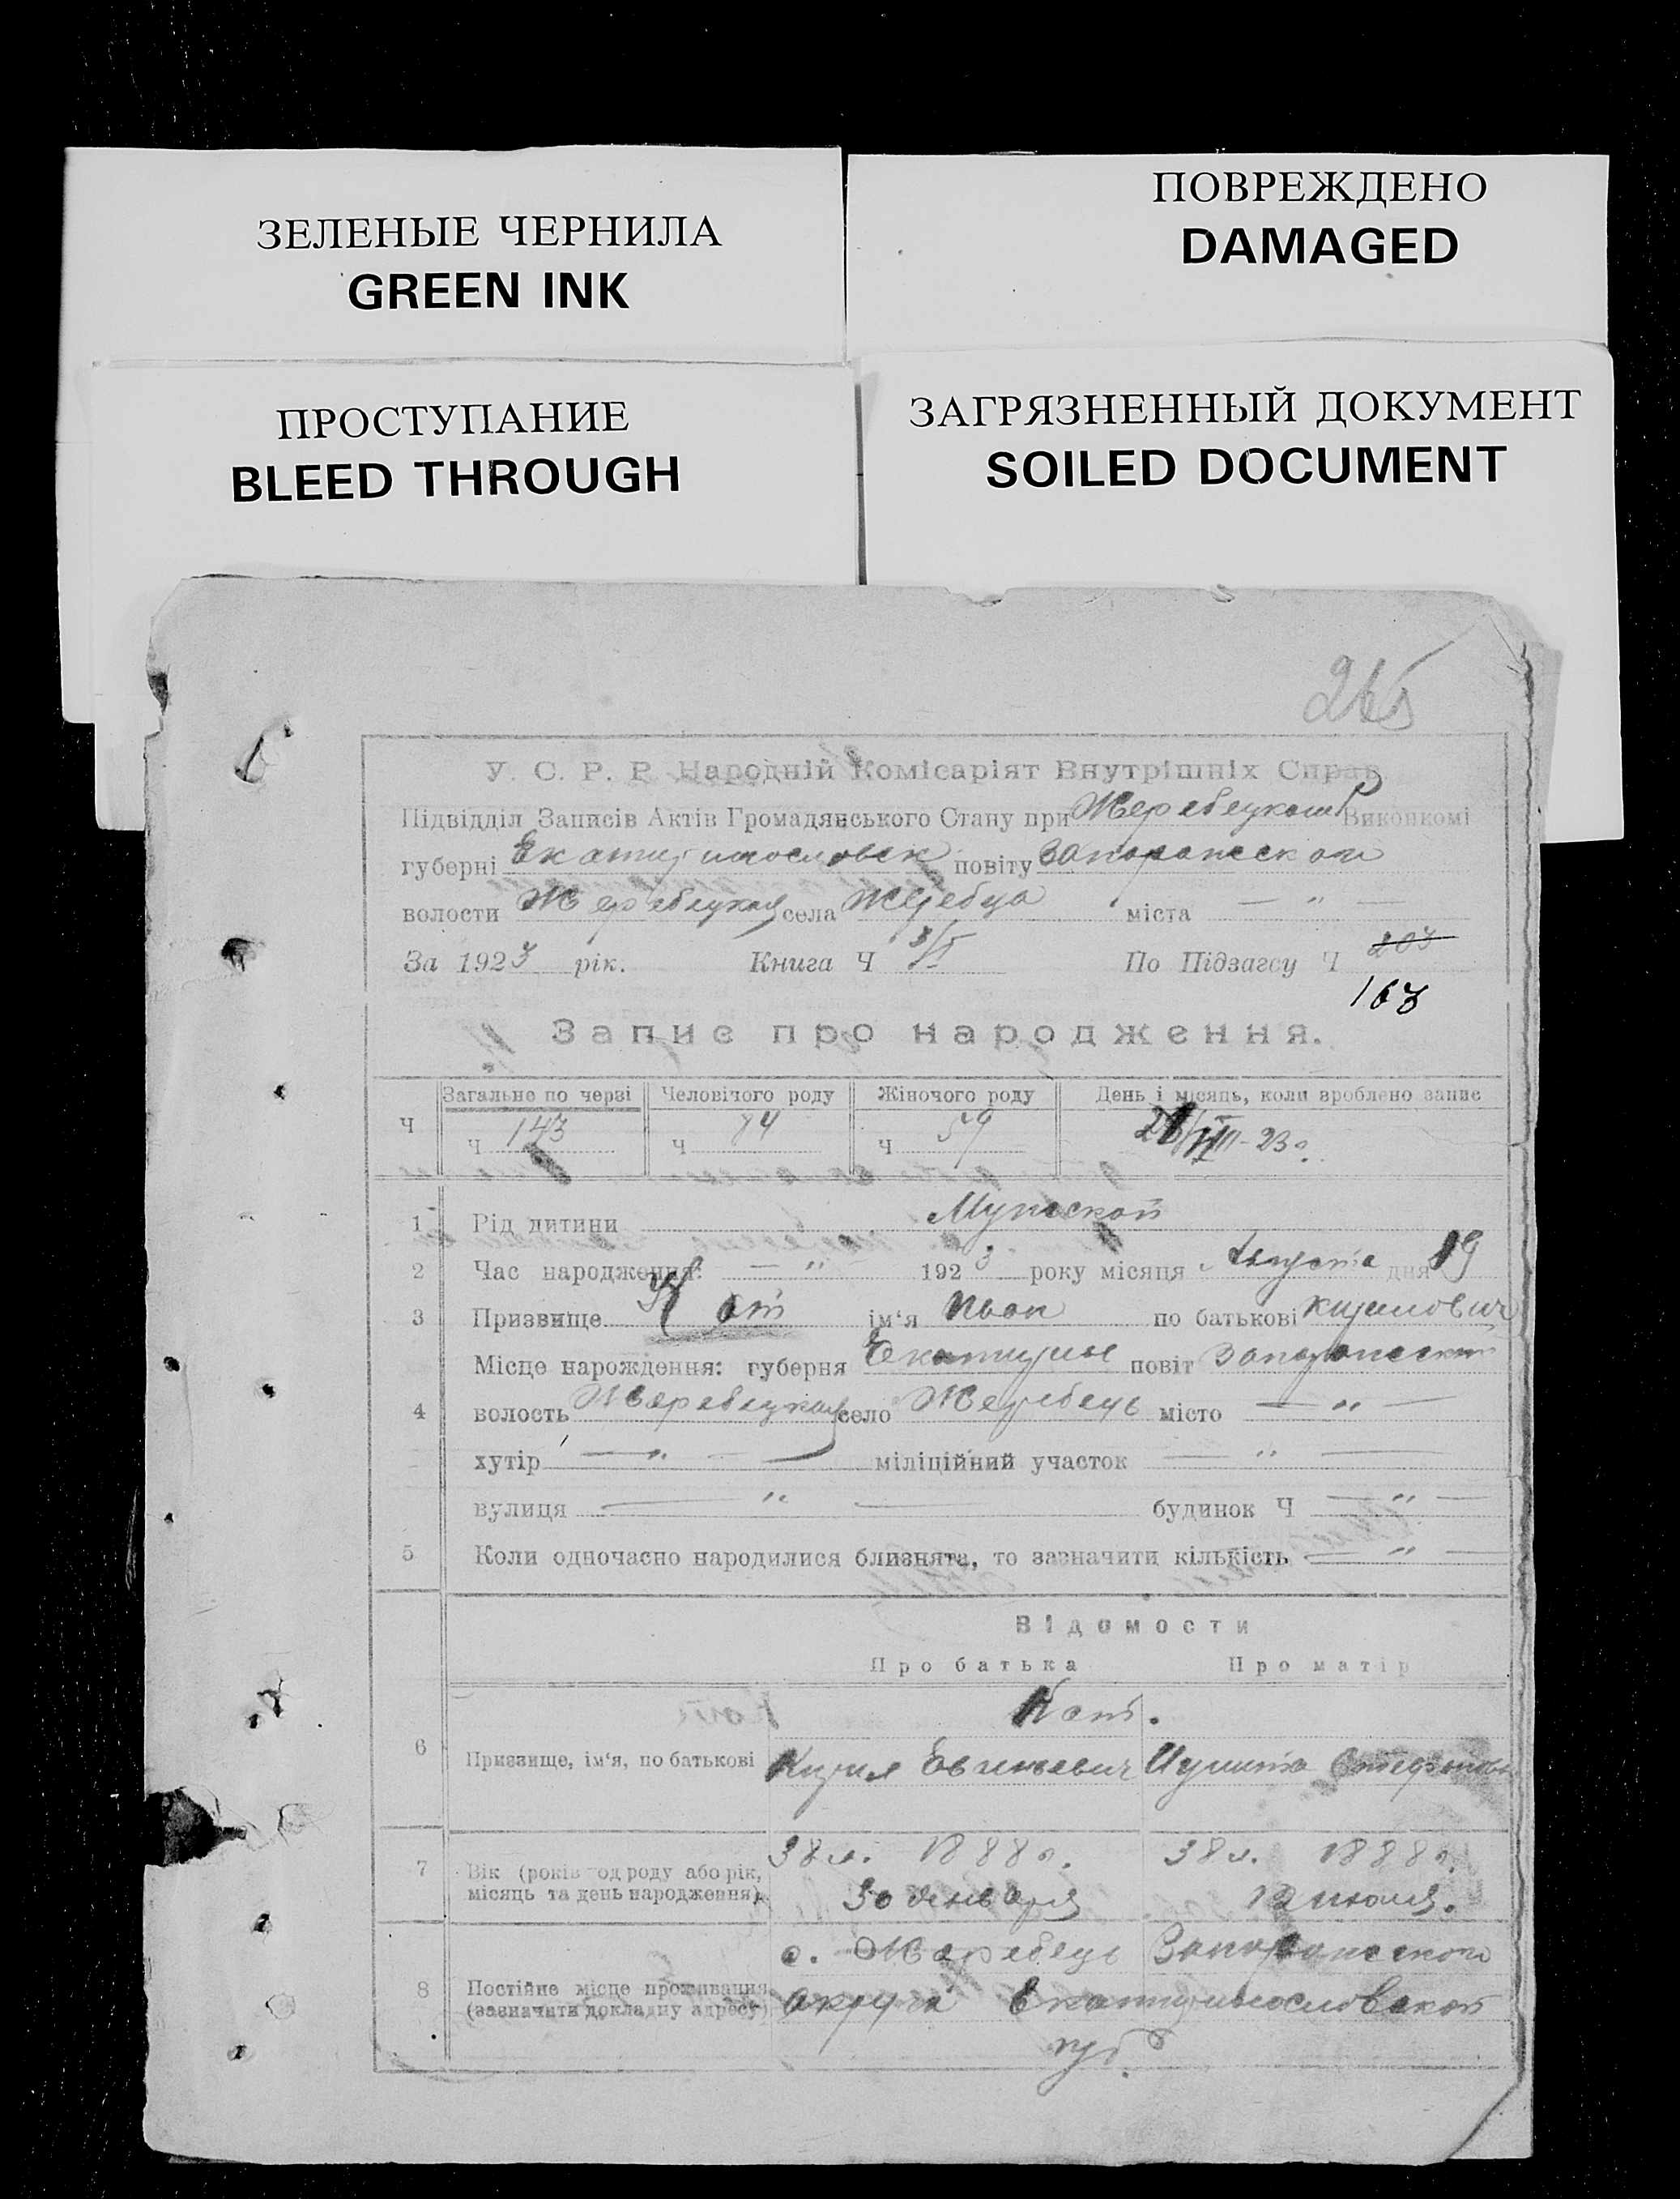 ЗЕЛЕНЫЕ ЧЕРНИЛА
GREEN INK
ПОВРЕЖДЕНО
DAMAGED
ПРОСТУПАНИЕ
BLEED THROUGH
ЗАГРЯЗНЕННЫЙ ДОКУМЕНТ
SOILED DOCUMENT
У. С. Р. Р. Народній Комісаріят Внутрішніх Справ
Підвідділ Записів Актів Громадянського Стану при Жеребецком Виконкомі
губерні Екатеринославск повіту Запорожском
волости Жеребецкая села Жеребца міста — " —
За 1923 рік. Книга Ч По Підзагсу Ч 203
163
Запис про народження.
Ч Загально по черзі Человічого роду Жіночого роду День і місяць, коли вроблено запис
Ч 143 Ч 84 Ч 59 23 г.
1 Рід дитини Мужской
2 Час народження: — " — 1923 року місяця Августа дня 19
3 Призвище Кот ім'я Иван по батькові Кирилович
Місце нарождення: губерня Екатерин повіт Запорожский
4 волость Жеребецкая село Жеребець місто — " —
хутір — " — міліційний участок — " —
вулиця — " — будинок Ч — " —
5 Коли одночасно народилися близнята, то зазначити кількість — " —
Відомости
Про батька Про матір
Кот.
6 Призвище, ім'я, по батькові Кирил Евгеньевич
7 Вік (років од роду або рік, 38 л. 1888 г. 38 л. 1888 г.
місяць та день народження) 30 января 12 июля.
с. Жеребець Запорожского
8 Постійне місце проживання
(зазначити докладну адресу) округа Екатеринославской
губ.